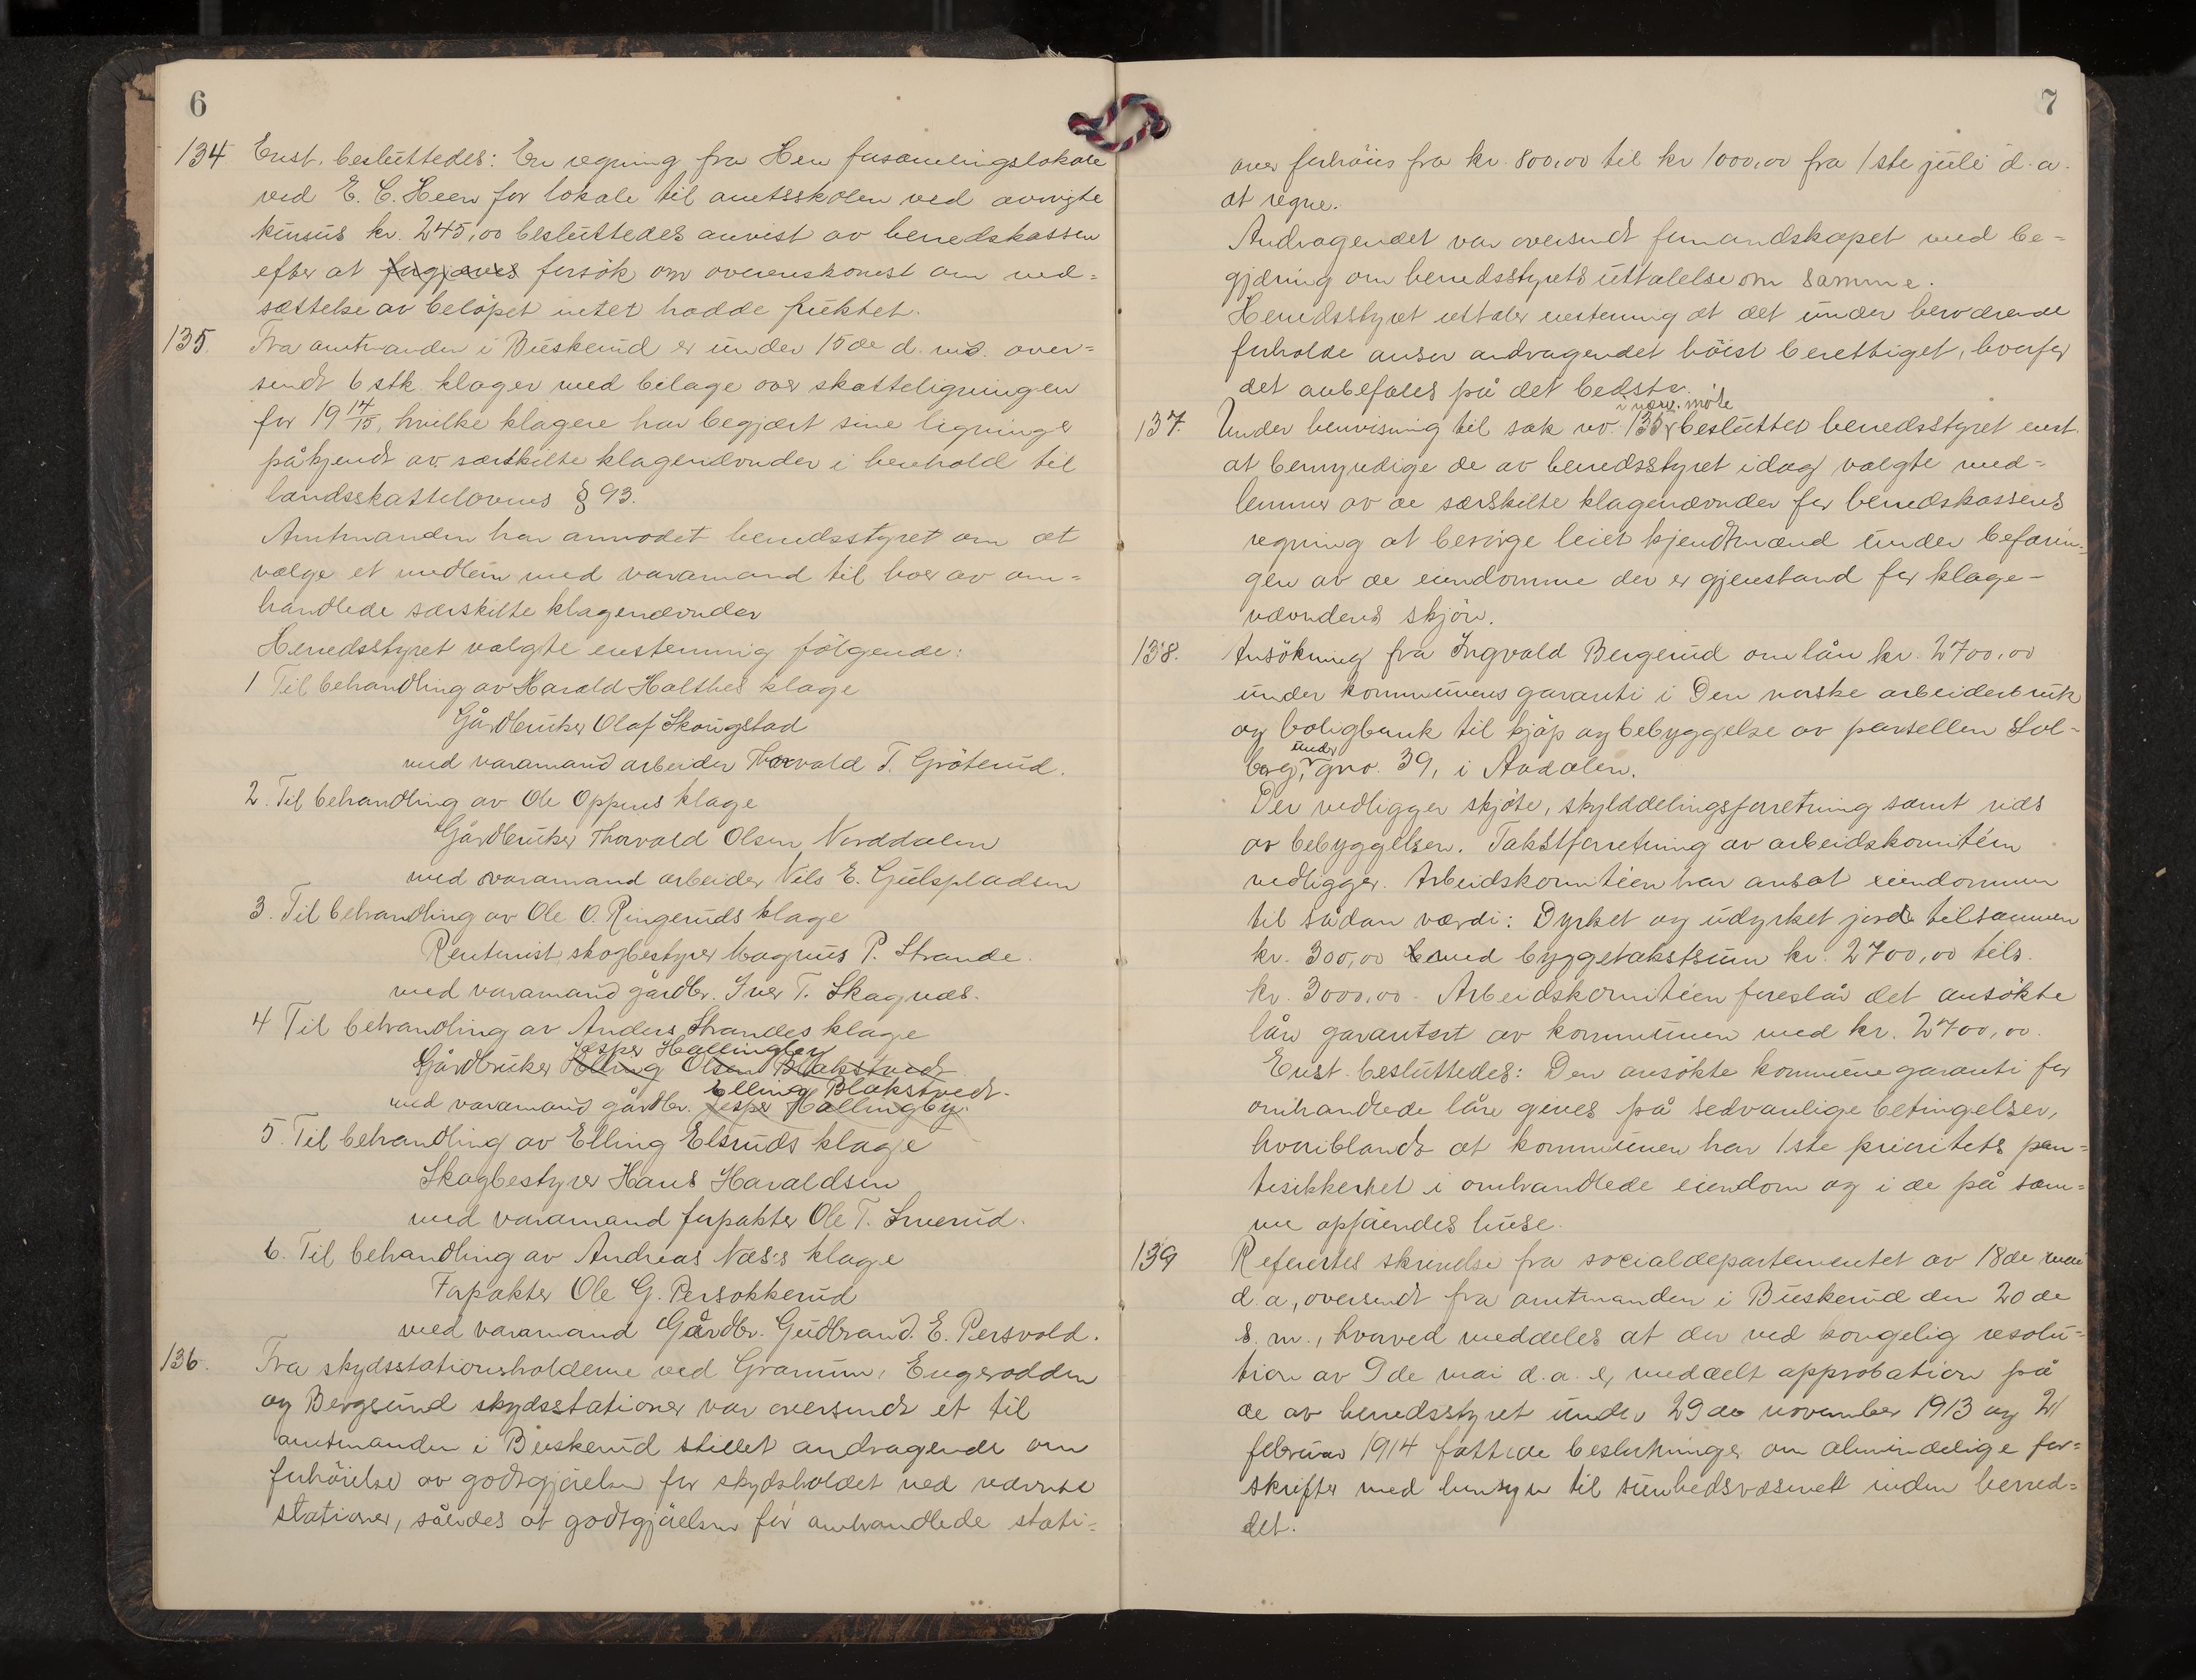 6
134. Enst. besluttedes: En regning fra Hen forsamlingslokale
ved E. C. Heen for lokale til amtsskolen ved avvigte
kursus kr. 245,00 besluttedes anvist av herredskassen
efter at forgjæves forsök om overenskomst om ned-
sættelse av belöpet intet hadde fruktet.
135. Fra amtmanden i Buskerud er under 15de d. md. over-
sendt 6 stk. klager med bilage over skatteligningen
for 19 14/15, hvilke klagere har begjært sine ligninger
påkjendt av særskilte klagenævnder i henhold til
landsskattelovens § 93.
Amtmanden har anmodet herredsstyret om at
vælge et medlem med varamand til hver av om-
handlede særskilte klagenævnder
Herredsstyret valgte enstemmig fölgende:
1 Til behandling av Harald Halthes klage
Gårdbruker Olaf Skougstad
med varamand arbeider Thorvald T. Gröterud.
2. Til behandling av Ole Oppens klage
Gårdbruker Thorvald Olsen Norddalen
med varamand arbeider Nils E. Gulspladsen
3. Til behandling av Ole O. Ringeruds klage
Rentenist, skogbestyrer Magnus P. Strande.
med varamand gårdbr. Iver T. Skagnæs.
4 Til behandling av Anders Strandes klage
Jesper Hallingby
Gårdbruker Elling Olsen Blakstvedt
Elling Blakstvedt.
med varamand gårdbr. Jesper Hallingby.
5. Til behandling av Elling Elsruds klage
Skogbestyrer Hans Haraldsen
med varamand forpakter Ole T. Smerud.
6. Til behandling av Andreas Næs's klage
Forpakter Ole G. Persokkerud
med varamand Gårdbr. Gudbrand. E. Persvold.
136. Fra skydsstationsholderne ved Granum, Engerodden
og Bergsund skydsstationer var oversendt et til
amtmanden i Buskerud stillet andragende om
forhöielse av godtgjörelsen for skydsholdet ved nævnte
stationer, således at godtgjörelsen for omhandlede stati-
7
oner forhöies fra kr. 800,00 til kr 1000,00 fra 1ste juli d. a.
at regne.
Andragendet var oversendt formandskapet med be-
gjæring om herredsstyrets uttalelse om samme.
Herredsstyret uttaler enstemmig at det under henværende
forholde anser andragendet höist berettiget, hvorfor
det anbefales på det bedste.
i nærv. möte
137. Under henvisning til sak no. 135 beslutter herredsstyret enst.
at bemyndige de av herredsstyret idag valgte med-
lemmer av de særskilte klagenævnder for herredskassens
regning at besörge leiet kjendtmænd under befarin-
gen av de eiendomme der er gjenstand for klage-
nævndens skjön.
138. Ansökning fra Ingvald Bergerud om lån kr. 2700,00
under kommunens garanti i Den norske arbeiderbruk
og boligbank til kjöp og bebyggelse av parsellen Sol-
under
berg, gno. 39, i Aadalen.
Der vedligger skjöte, skylddelingsforretning samt rids
av bebyggelsen. Takstforretning av arbeidskomitéen
vedligger. Arbeidskomitéen har ansat eiendommen
til sådan værdi: Dyrket og udyrket jord tilsammen
kr. 300,00 med byggetakstsum kr. 2700,00 tils.
kr. 3000,00. Arbeidskomitéen foreslår det ansökte
lån garantert av kommunen med kr. 2700,00.
Enst. besluttedes: Den ansökte kommunegaranti for
omhandlede lån gives på sedvanlige betingelser,
hvoriblandt at kommunen har 1ste prioritets pan-
tesikkerhet i omhandlede eiendom og i de på sam-
me opförendes huse.
139 Refertes skrivelse fra socialdepartementet av 18de mai
d. a., oversendt fra amtmanden i Buskerud den 20de
s. m., hvorved meddeles at der ved kongelig resolu-
tion av 9de mai d. a. er meddelt approbation på
de av herredsstyret under 29de november 1913 og 21
februar 1914 fattede beslutninger om almindelige for-
skrifter med hensyn til sundhedsvæsenet inden herred-
det.